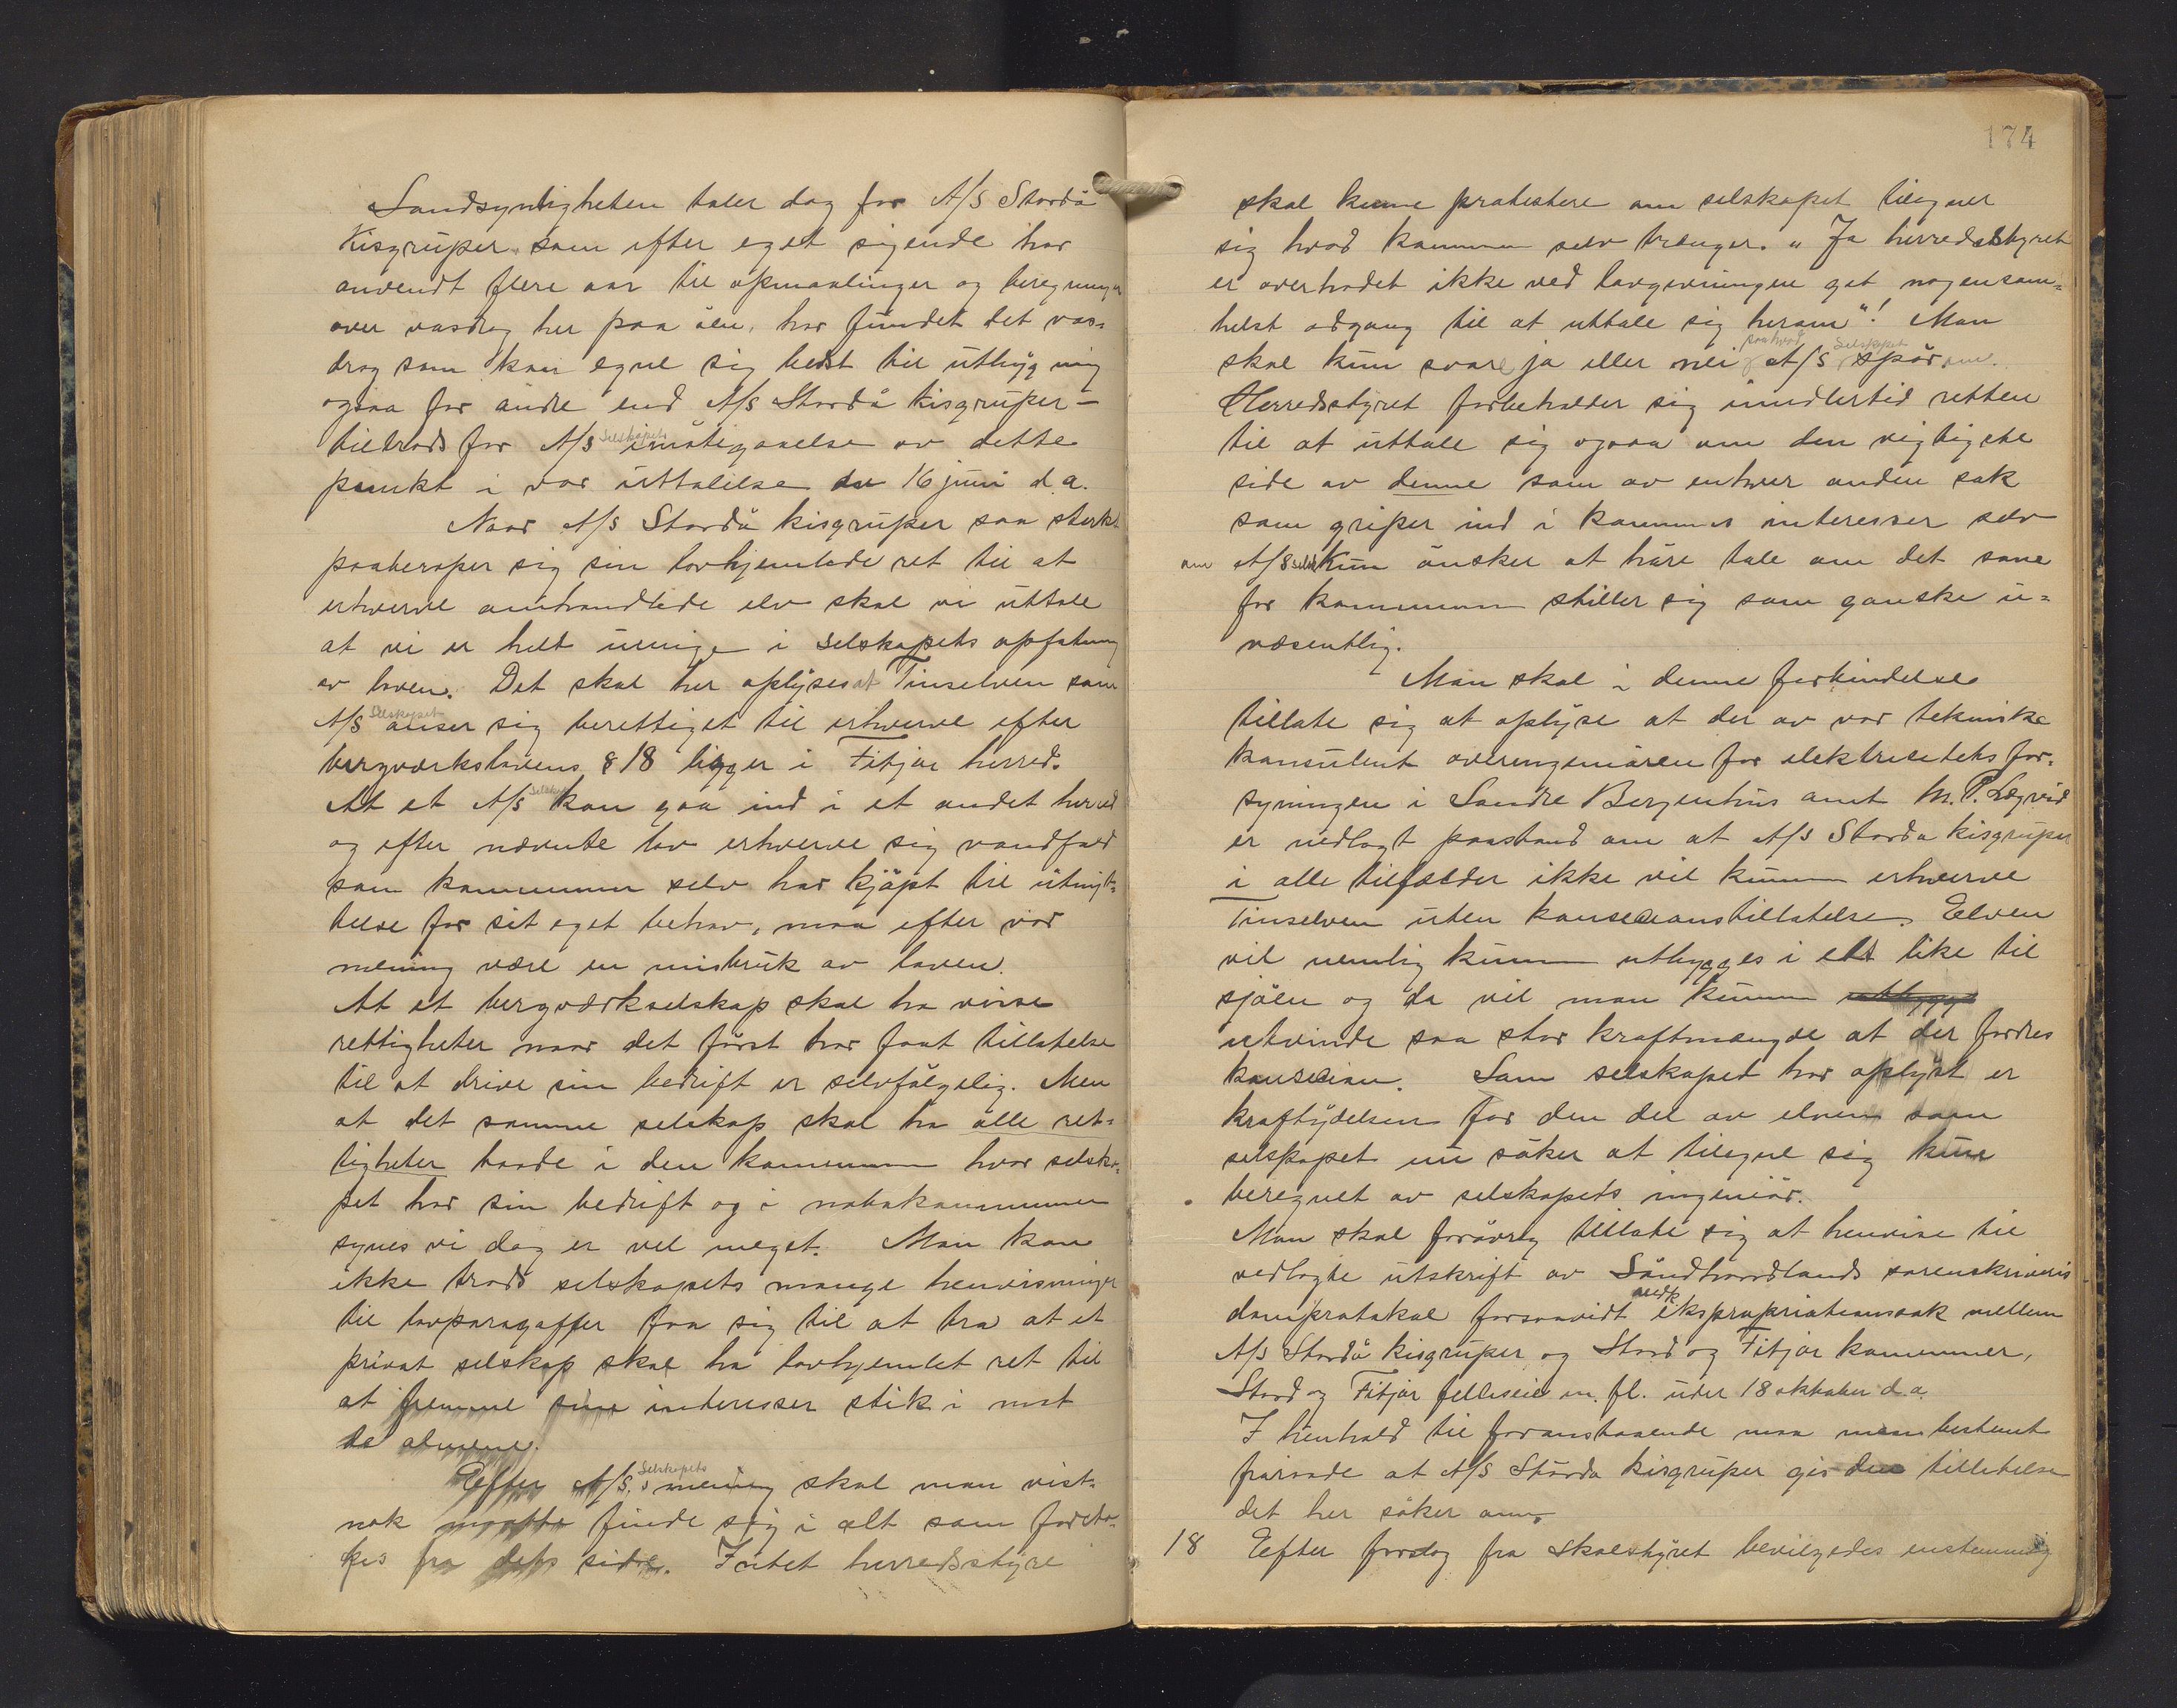 Sandsynligheten taler dog for A/S Stordø
Kisgruper som efter eget sigende har
anvendt flere aar til opmaalinger og beregninger
over vasdrag her paa øen, har fundet det vas-
drag som kan egne sig bedst til utbygning
ogsaa for andre end A/S Stordø kisgruper –
tiltrods for A/S Selskapets imøtegaaelse av dette
punkt i vor uttalelse av 16 juni d.a.
Naar A/S Stordø kisgruper saa sterkt
paaberoper sig sin lovhjemlede ret til at
erhverve omhandlede elv skal vi uttale
at vi er helt uenige i selskapets opfatning
av loven. Det skal her oplyses at Tinselven som
A/S Selskapet anser sig berettiget til at erhverve efter
bergverkslovens § 18 ligger i Fitjar herred.
At et A/S Selskap kan gaa ind i et andet herred
og efter nævnte lov erhverve sig vandfald
som kommunen selv har kjøpt til utnyt-
telse for sit eget behov, maa efter vor
mening være en misbruk av loven.
At et bergverkselskap skal ha visse
rettigheter naar det først har faat tillatelse
til at drive sin bedrift er selvfølgelig. Men
at det samme selskap skal ha alle ret-
tigheter baade i den kommunen hvor selska-
pet har sin bedrift og i nabokommunen
synes vi dog er vel meget. Man kan
ikke trods selskapets mange henvisninger
til lovparagaffer faa sig til at tro at et
privat selskap skal ha lovhjemlet ret til
at fremme sine interesser stik i mot
de almene.
Efter A/S. Selskapets mening skal man vist-
nok maatte finde sig i alt som foreta-
kes fra dets side. Intet herredsstyre
174
skal kunne protestere om selskapet tilegner
sig hvad kommunen selv trænger. "Ja herredsstyret
er overhodet ikke ved lovgivningen git nogensom-
helst adgang til at uttale sig herom"! Man
skal kun svare ja eller nei paa hvad A/S Selskapet spør om.
Herredsstyret forbeholder sig imidlertid retten
til at uttale sig ogsaa om den vigtigste
side av denne som av enhver anden sak
som griper ind i kommunes interesser selv
om A/S selsk kun ønsker at høre tale om det som
for kommunen stiller sig som ganske u-
væsentlig.
Man skal i denne forbindelse
tillate sig at oplyse at der av vor tekniske
konsulent overingeniøren for elektrisitetsfor-
syningen i Søndre Bergenhus amt hr. P. Lægreid
er nedlagt paastand om at A/S Stordø kisgruper
i alle tilfælder ikke vil kunne erhverve
Tinselven uten konsesionstillatelse. Elven
vil nemlig kunne utbygges i ett like til
sjøen og da vil man kunne utbygge
utvinde saa stor kraftmængde at der fordres
konsesion. Som selskapet har oplyst er
kraftydelsen for den del av elven som
selskapet nu søker at tilegne sig kun
beregnet av selskapets ingeniør.
Man skal forøvrig tillate sig at henvise til
vedlagte utskrift av Søndhordlands sorenskriveris
domprotokol forsaavidt vedk ekspropriationssak mellem
A/S Stordø kisgruper og Stord og Fitjar kommuner,
Stord og Fitjar felleseie m. fl. under 18 oktober d.a.
I henhold til foranstaaende maa man bestemt
fraraade at A/S Stordø kisgruper gis den tilletelse
det her søker om.
18 Efter forslag fra Skolestyret bevilgedes enstemmig